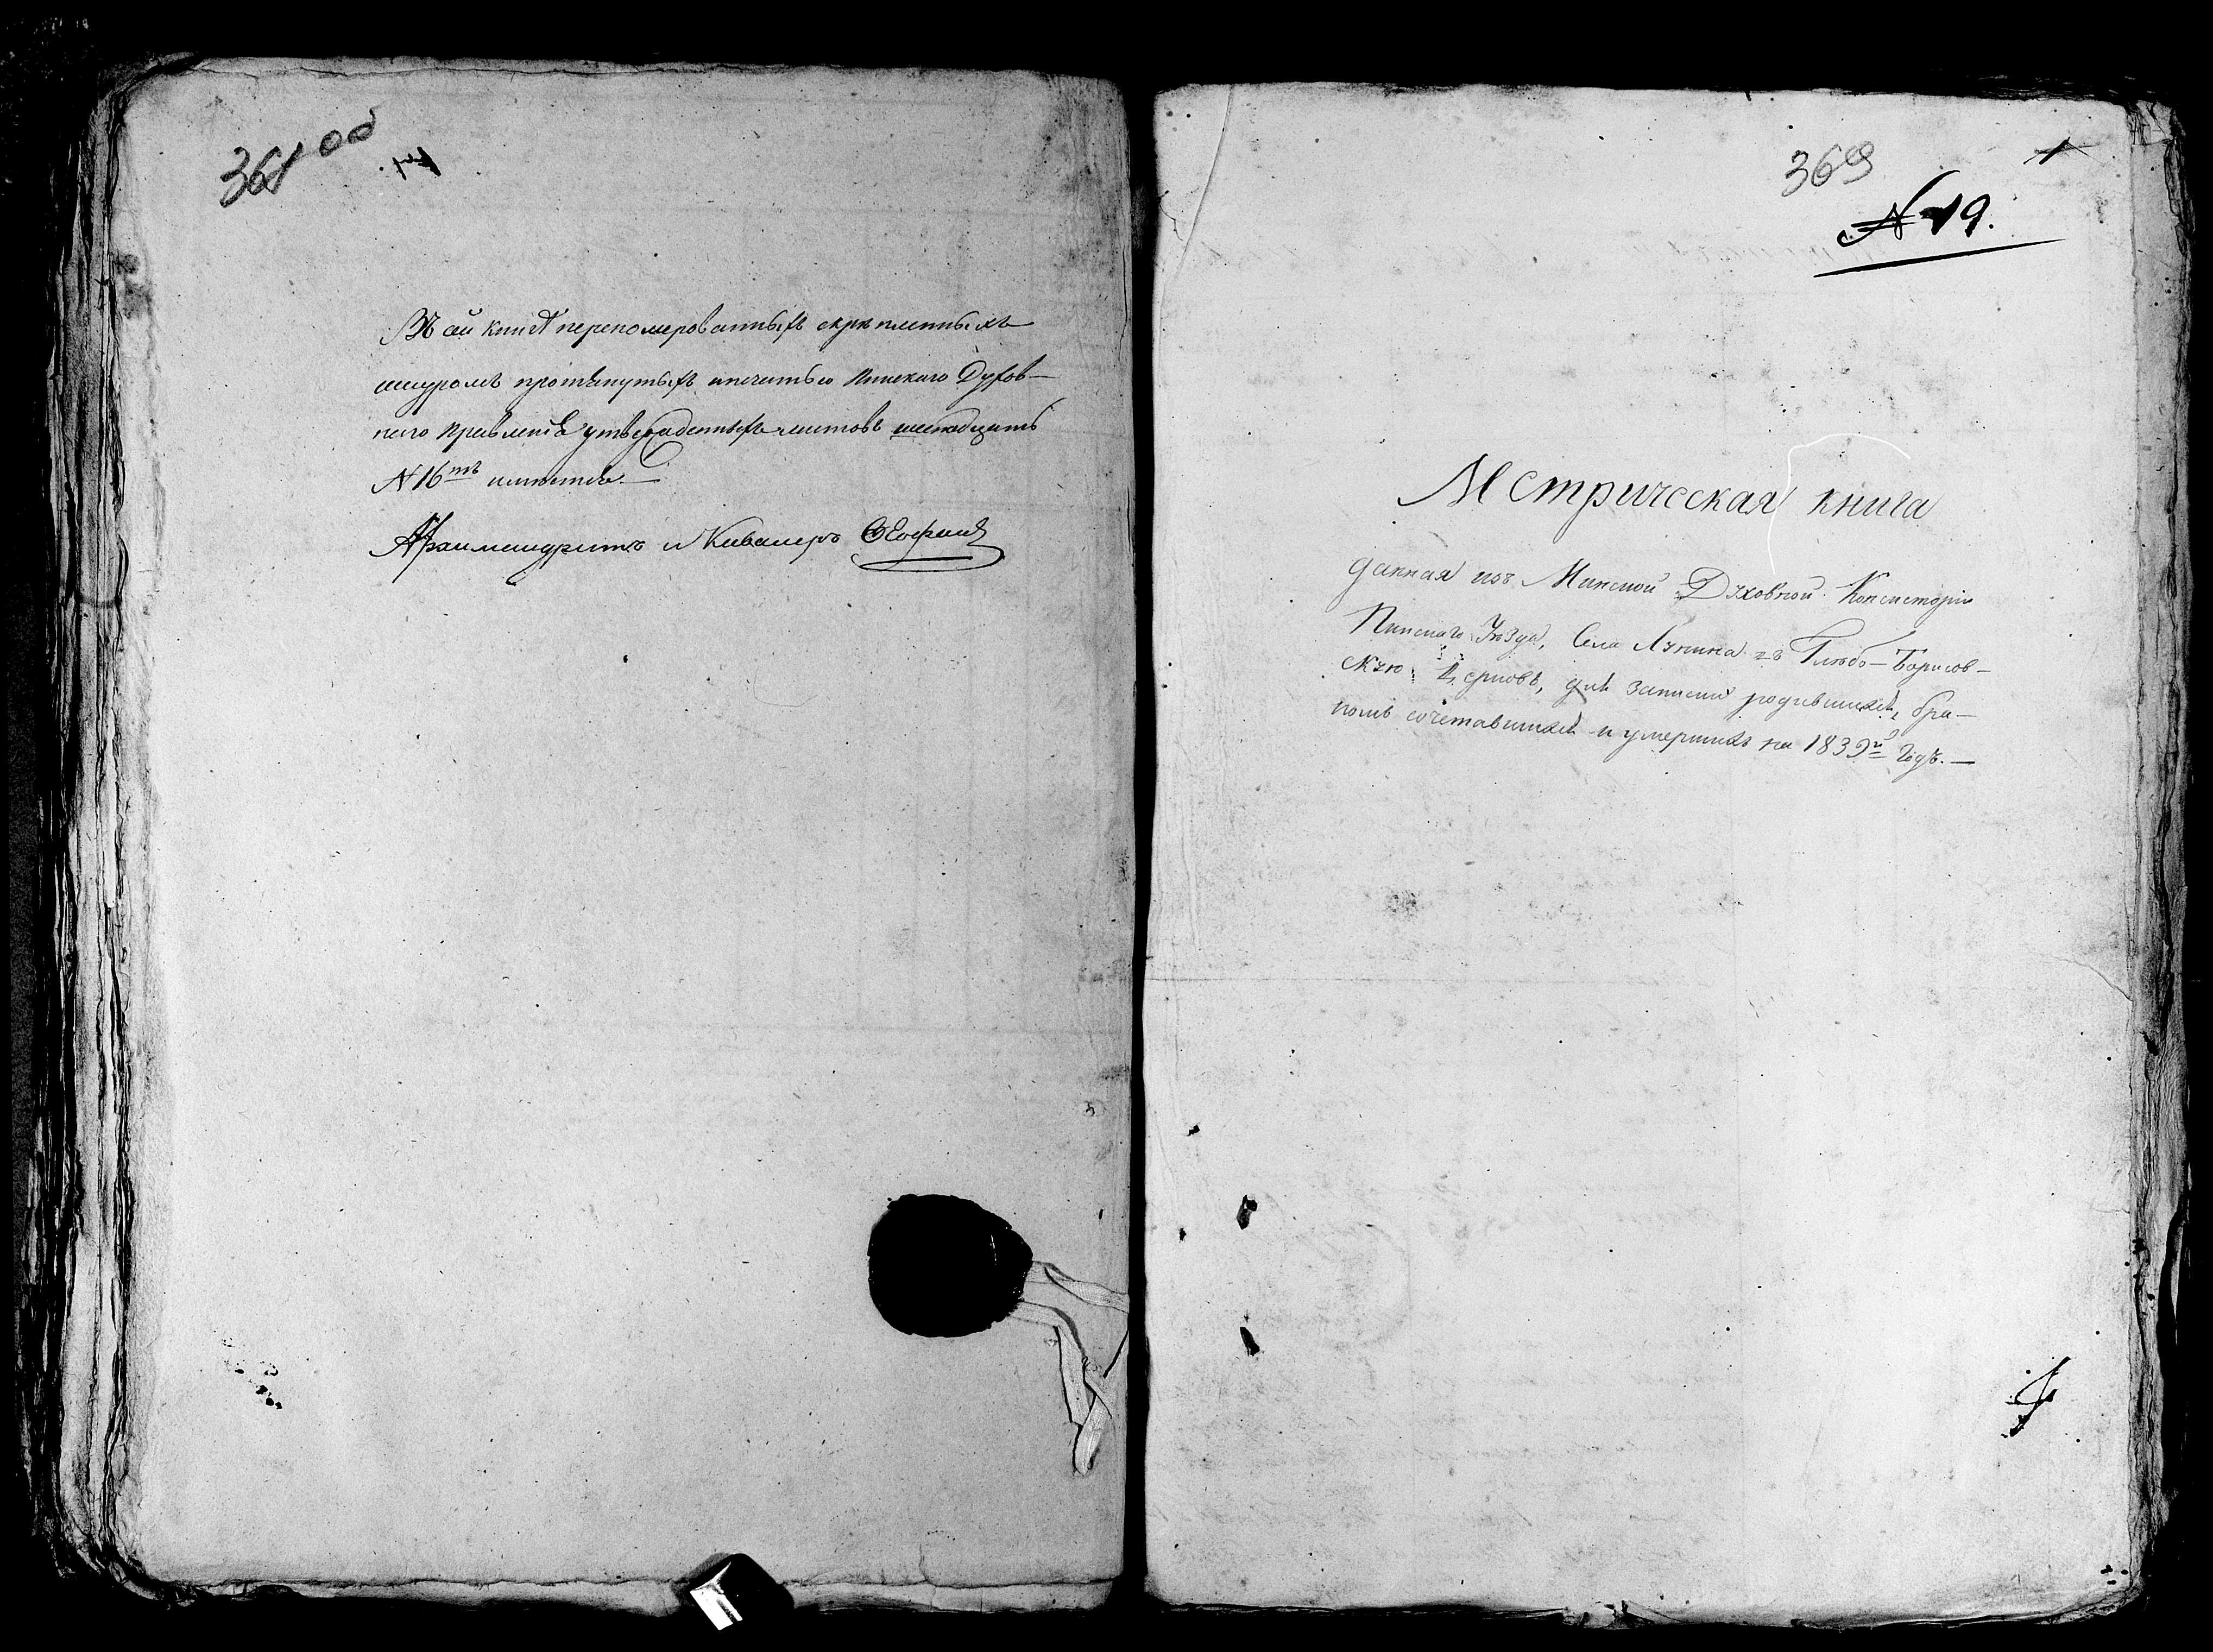 361 об
Въ сей книгѣ перепомерованныхъ скрепленныхъ
шнуромъ протянутыхъ и печатью Пинскаго Духов-
наго Правленія утвержденныхъ листовъ шестнадцать
№ 16тъ имѣется.
Архимандритъ и Кавалеръ
369
1
№ 19.
Метрическая книга
данная изъ Минской Духовной Консисторіи
Пинскаго Уѣзда, Села Лунина въ Глѣбо-Борисов-
скую Церковь, для записки родившихся, бра-
комъ сочетавшихся и умершихъ на 1839й Годъ.—